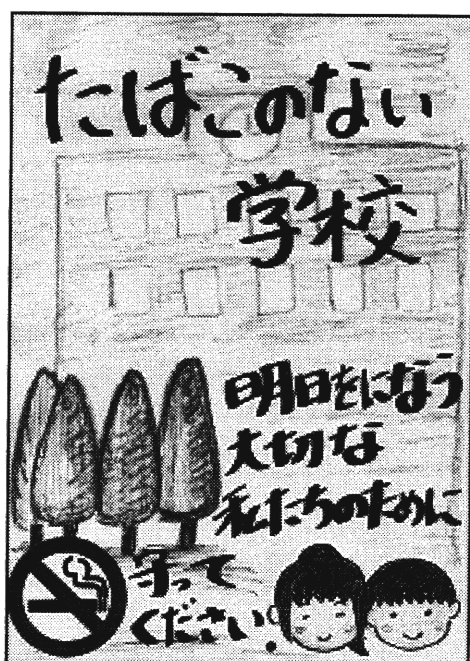 たばこのない
学校
明日をになう
大切な
私たちのために
守って
ください。